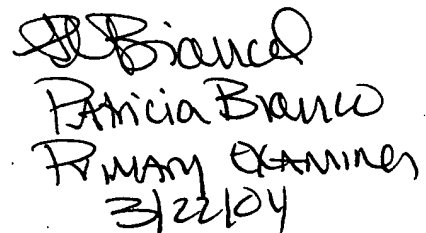 Bianco
Patricia Bianco
Primary Examiner
3/22/04